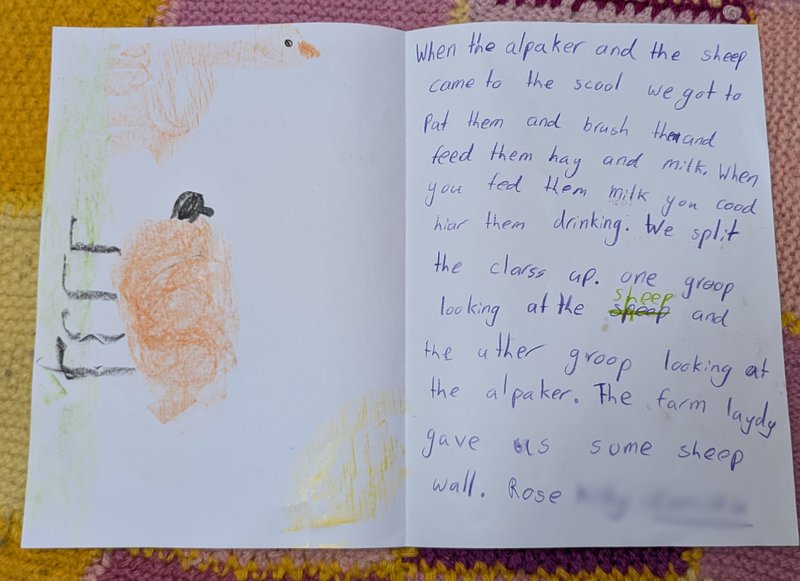 When the alpaker and the sheep
came to the scool we got to
pat them and brush them and
feed them hay and milk. When
you fed them milk you cood
hiar them drinking. We split
the clarss up. one groop
looking at the sheep and
the uther groop looking at
the alpaker. The farm laydy
gave us some sheep
wall. Rose